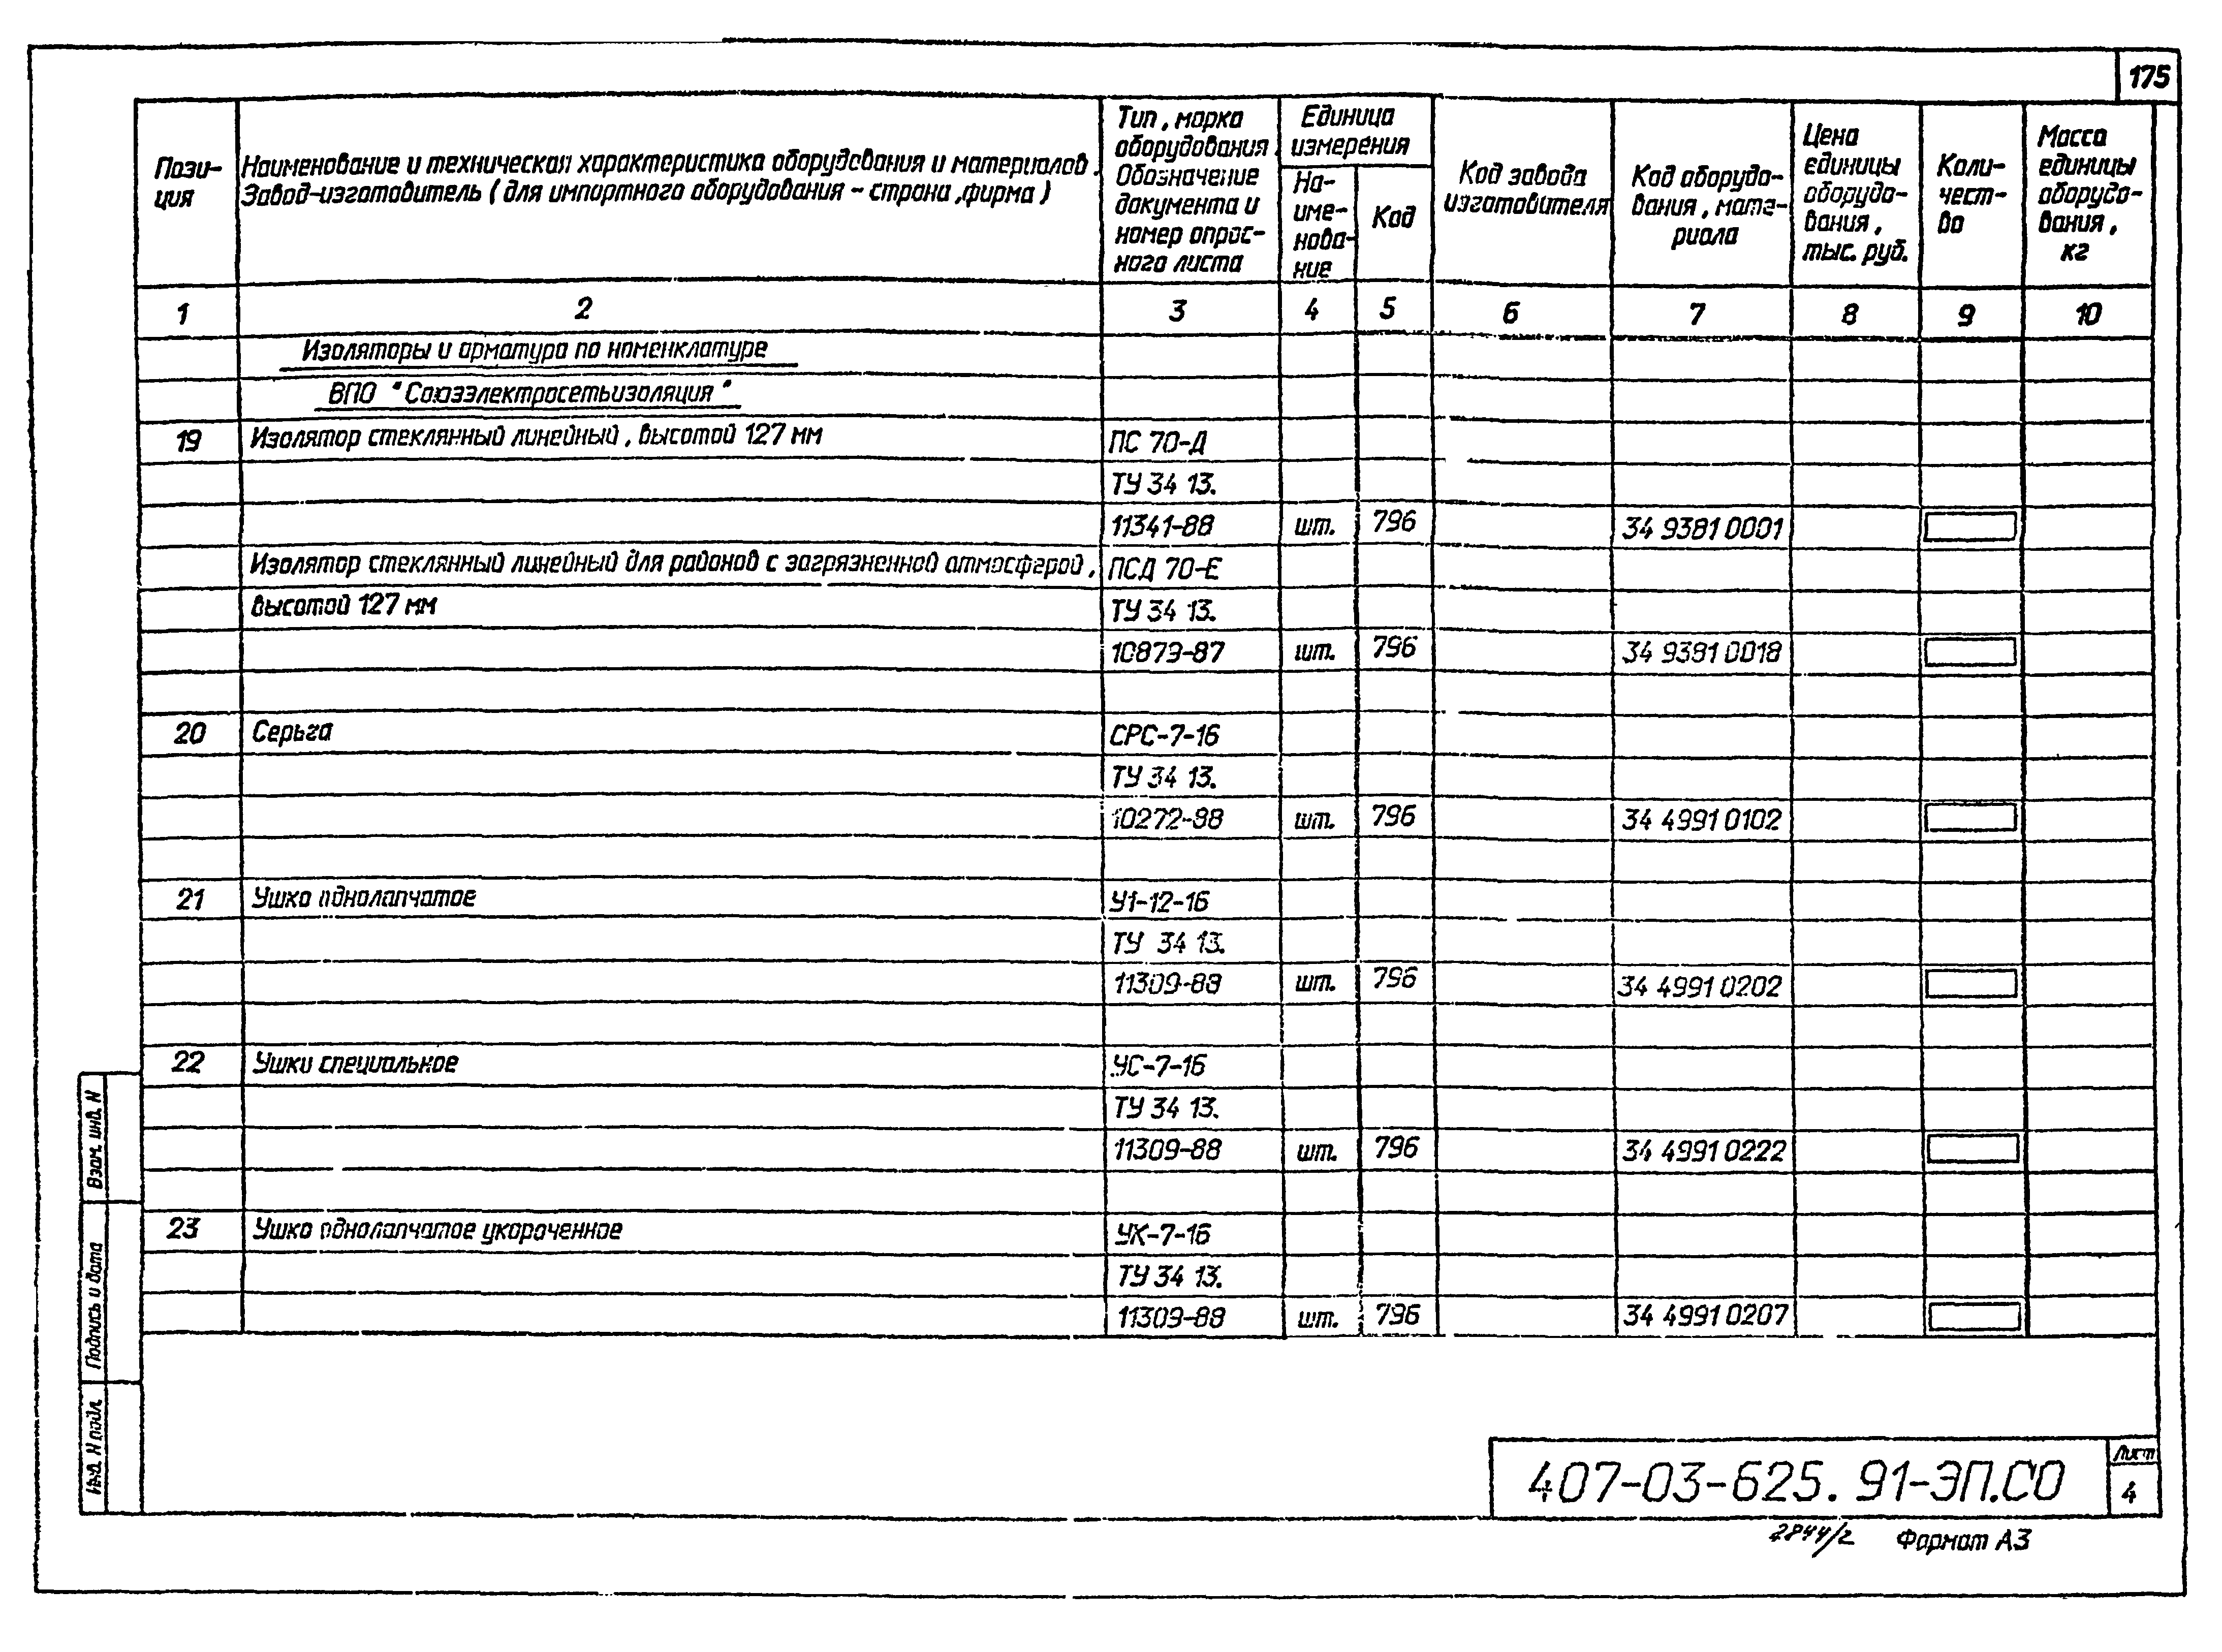 175
Пози-
ция
Наименование и техническая характеристика оборудования и материалов.
Завод-изготовитель (для импортного оборудования - страна, фирма)
Тип, марка
оборудования.
Обозначение
документа и
номер опрос-
ного листа
Единица
измерения
На-
име-
нова-
ние
Код
Код завода
изготовителя
Код оборудо-
вания, мате-
риала
Цена
единицы
оборудо-
вания,
тыс. руб.
Коли-
чест-
во
Масса
единицы
оборудо-
вания,
кг
1 2 3 4 5 6 7 8 9 10
Изоляторы и арматура по номенклатуре
ВПО "Союзэлектросетьизоляция"
19 Изолятор стеклянный линейный, высотой 127 мм ПС 70-Д
ТУ 34 13.
11341-88 шт. 796 34 9381 0001
Изолятор стеклянный линейный для районов с загрязненной атмосферой, ПСД 70-Е
высотой 127 мм ТУ 34 13.
10879-87 шт. 796 34 9381 0018
20 Серьга СРС-7-16
ТУ 34 13.
10272-88 шт. 796 34 4991 0102
21 Ушко однолапчатое У1-12-16
ТУ 34 13.
11309-88 шт. 796 34 4991 0202
22 Ушки специальное УС-7-16
ТУ 34 13.
11309-88 шт. 796 34 4991 0222
23 Ушко однолапчатое укороченное УК-7-16
ТУ 34 13.
11309-88 шт. 796 34 4991 0207
Взам. инв. N
Подпись и дата
Инв. N подл.
407-03-625.91-ЭП.СО
Лист
4
2844/2 Формат А3